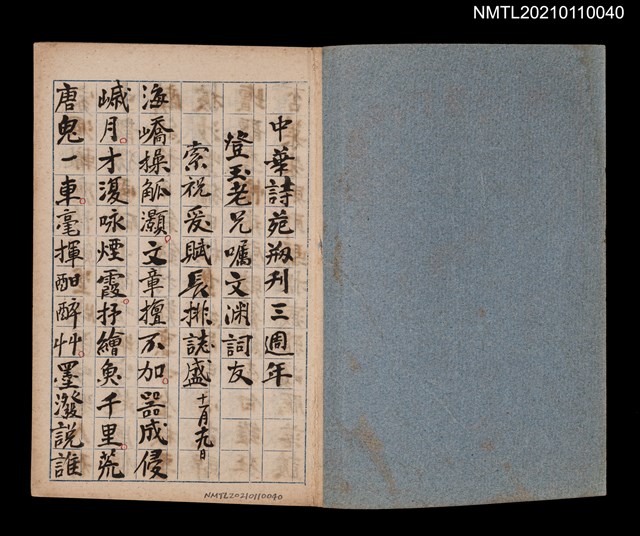 NMTL20210110040
中華詩苑剏刊三週年
登玉老兄囑文淵詞友
索祝爰賦長排誌盛 十一月十九日
海嶠操觚灝文章擅不加器成侵
嵗月才復咏煙霞抒繪奐千里荒
唐鬼一車毫揮酣醉艸墨潑說誰
NMTL20210110040